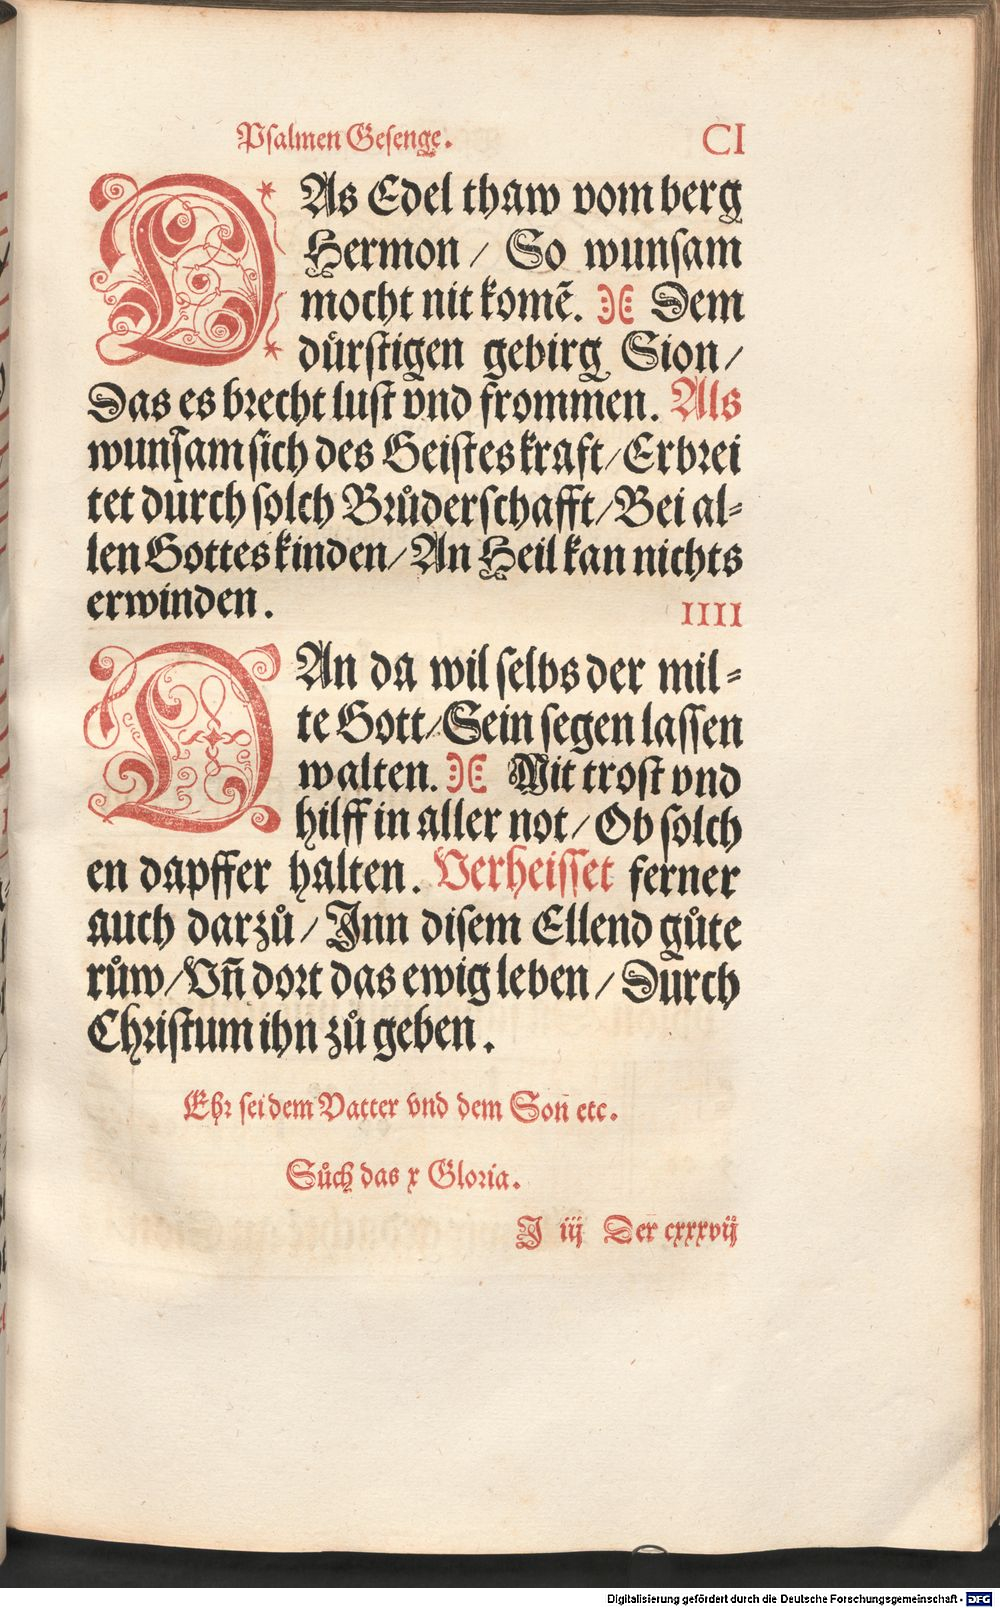 Psalmen Gesenge. CI
DAs Edel thaw vom berg
Hermon / So wunsam
mocht nit komē. Dem
dürstigen gebirg Sion /
Das es brecht lust vnd frommen. Als
wunsam sich des Geistes kraft / Erbrei
tet durch solch Brůderschafft / Bei al⸗
len Gottes kinden / An Heil kan nichts
erwinden. IIII
DAn da wil selbs der mil⸗
te Gott / Sein segen lassen
walten. Mit trost vnd
hilff in aller not / Ob solch
en dapffer halten. Verheisset ferner
auch darzů / Jnn disem Ellend gůte
růw / Vñ dort das ewig leben / Durch
Christum ihn zů geben.
Ehr sei dem Vatter vnd dem Son̄ etc.
Sůch das x Gloria.
J iij Der cxxxvij
Digitalisierung gefördert durch die Deutsche Forschungsgemeinschaft - DFG